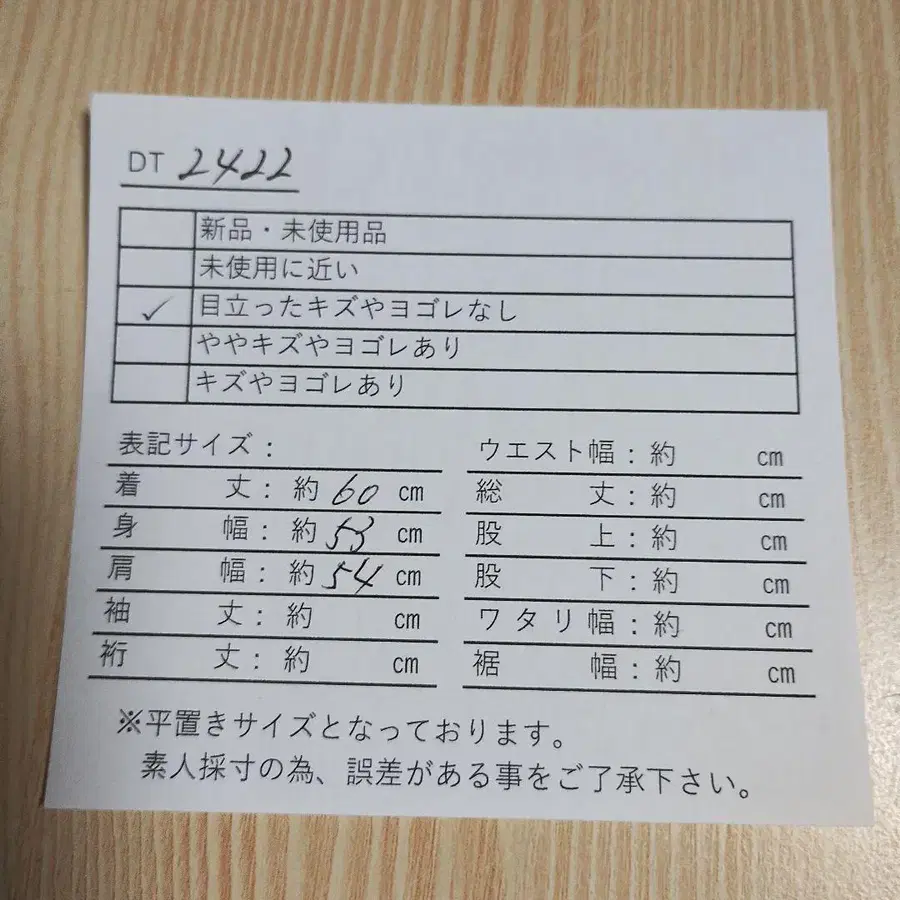 DT 2422
新品・未使用品
未使用に近い
✓ 目立ったキズやヨゴレなし
ややキズやヨゴレあり
キズやヨゴレあり
表記サイズ：
着丈：約 60 cm
身幅：約 53 cm
肩幅：約 54 cm
袖丈：約 cm
裄丈：約 cm
ウエスト幅：約 cm
総丈：約 cm
股上：約 cm
股下：約 cm
ワタリ幅：約 cm
裾幅：約 cm
※平置きサイズとなっております。
素人採寸の為、誤差がある事をご了承下さい。